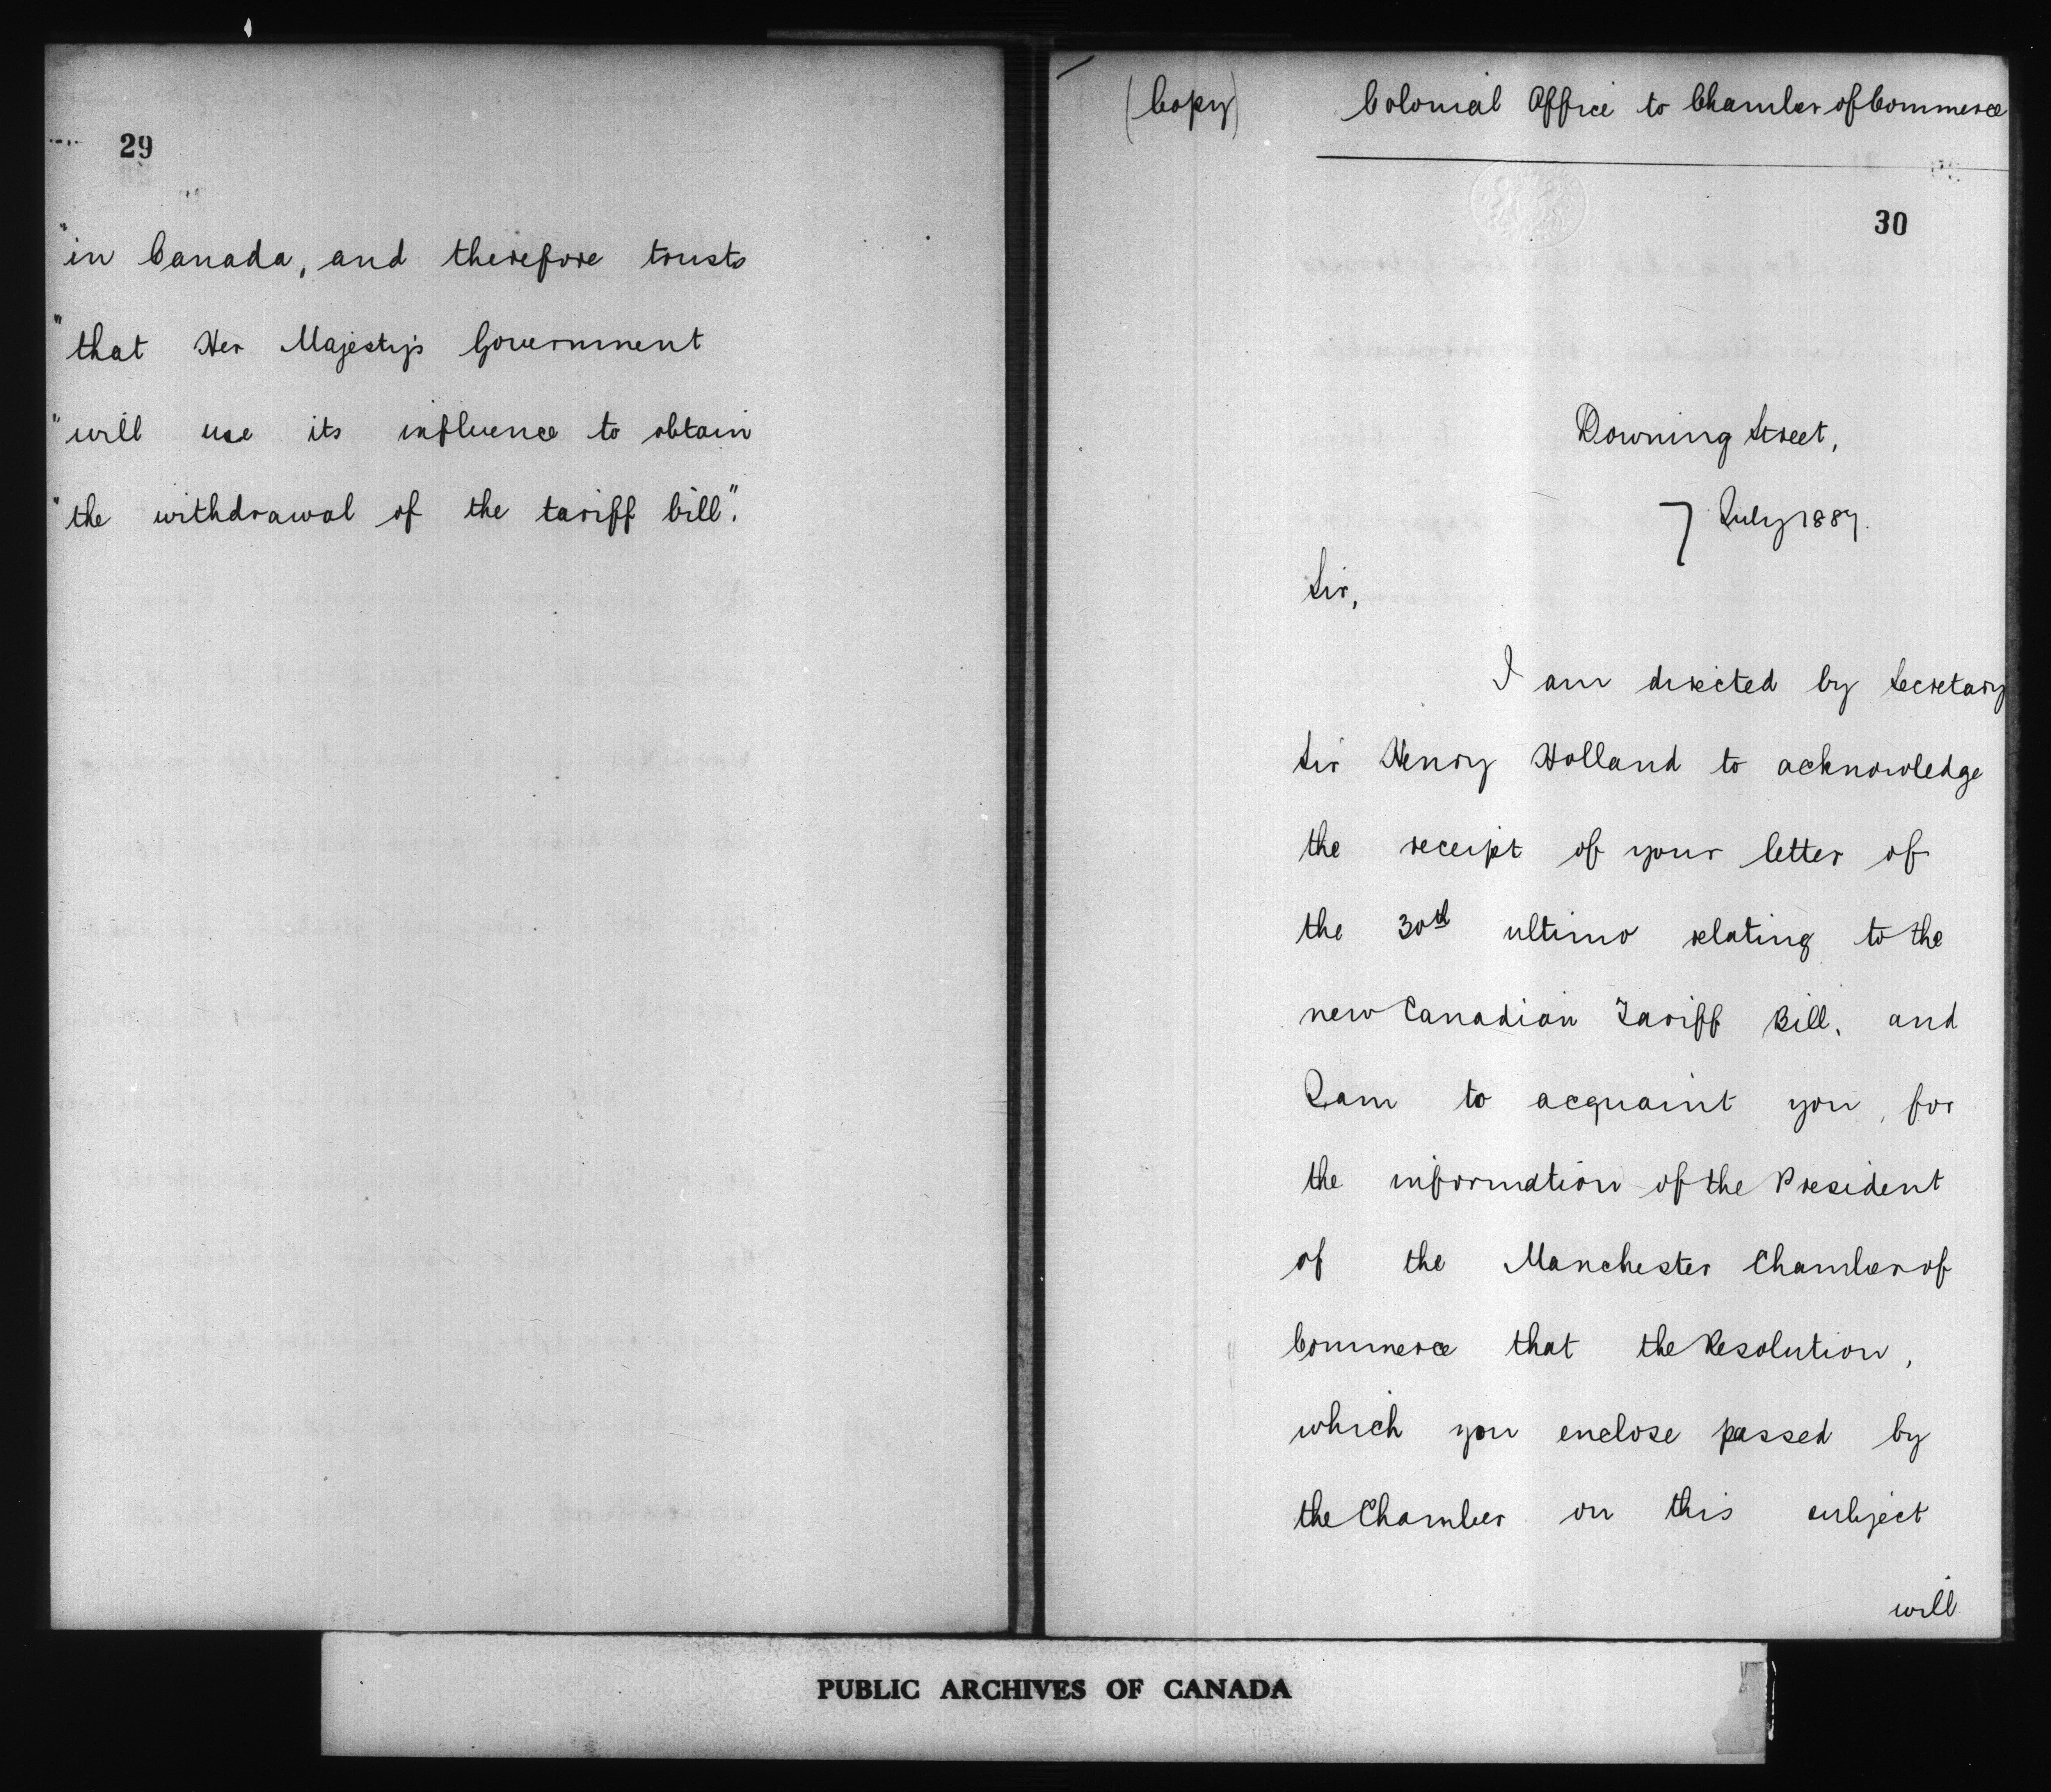 29
"in Canada, and therefore trusts
"that Her Majesty's Government
"will use its influence to obtain
"the withdrawal of the tariff bill".
(Copy)
Colonial Office to Chamber of Commerce
30
Downing Street,
7 July 1887.
Sir,
I am directed by Secretary
Sir Henry Holland to acknowledge
the receipt of your letter of
the 30th ultimo relating to the
new Canadian Tariff Bill, and
I am to acquaint you, for
the information of the President
of the Manchester Chamber of
Commerce that the Resolution,
which you enclose passed by
the Chamber on this subject
will
PUBLIC ARCHIVES OF CANADA